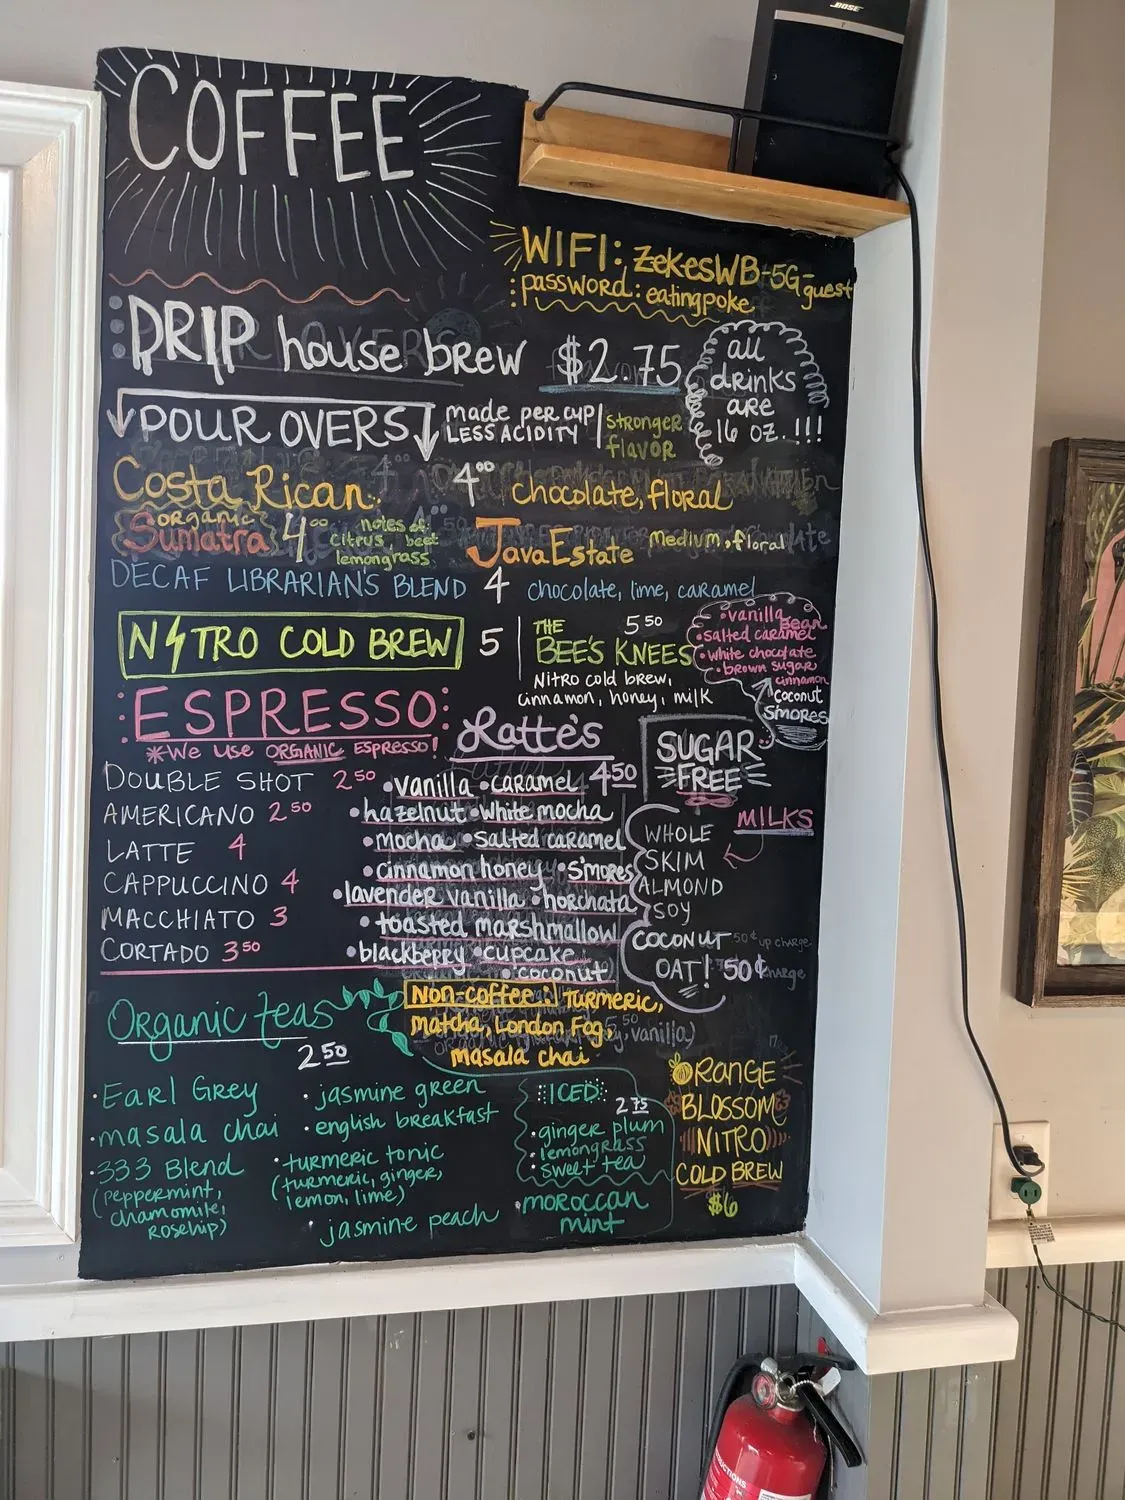 BOSE
COFFEE
WIFI: ZekesWB-5G-guest
password: eatingpoke
DRIP house brew $2.75
all
drinks
are
16 oz.!!!
POUR OVERS
made per cup
LESS ACIDITY
stronger
flavor
Costa Rican 4.00 chocolate, floral
organic
Sumatra 4.00
notes of:
citrus beet
lemongrass
Java Estate medium, floral
DECAF LIBRARIAN'S BLEND 4 chocolate, lime, caramel
NITRO COLD BREW 5
THE 5.50
BEE'S KNEES
Nitro cold brew,
cinnamon, honey, milk
•vanilla bean
•salted caramel
•white chocolate
•brown sugar
cinnamon
coconut
S'mores
ESPRESSO
*We use ORGANIC ESPRESSO!
DOUBLE SHOT 2.50
AMERICANO 2.50
LATTE 4
CAPPUCCINO 4
MACCHIATO 3
CORTADO 3.50
Latte's
•vanilla •caramel 4.50
•hazelnut •white mocha
•mocha •Salted caramel
•cinnamon honey •S'mores
•lavender vanilla •horchata
•toasted marshmallow
•blackberry •cupcake
•coconut
SUGAR
FREE
MILKS
WHOLE
SKIM
ALMOND
SOY
COCONUT .50¢ up charge
OAT! .50¢ charge
Organic teas
2.50
•Earl Grey
•masala chai
•333 Blend
(peppermint,
chamomile,
rosehip)
•jasmine green
•english breakfast
•turmeric tonic
(turmeric, ginger,
lemon, lime)
•jasmine peach
Non-coffee: turmeric,
matcha, London Fog,
masala chai
ICED
2.75
•ginger plum
•lemongrass
•sweet tea
•moroccan
mint
ORANGE
BLOSSOM
NITRO
COLD BREW
$6